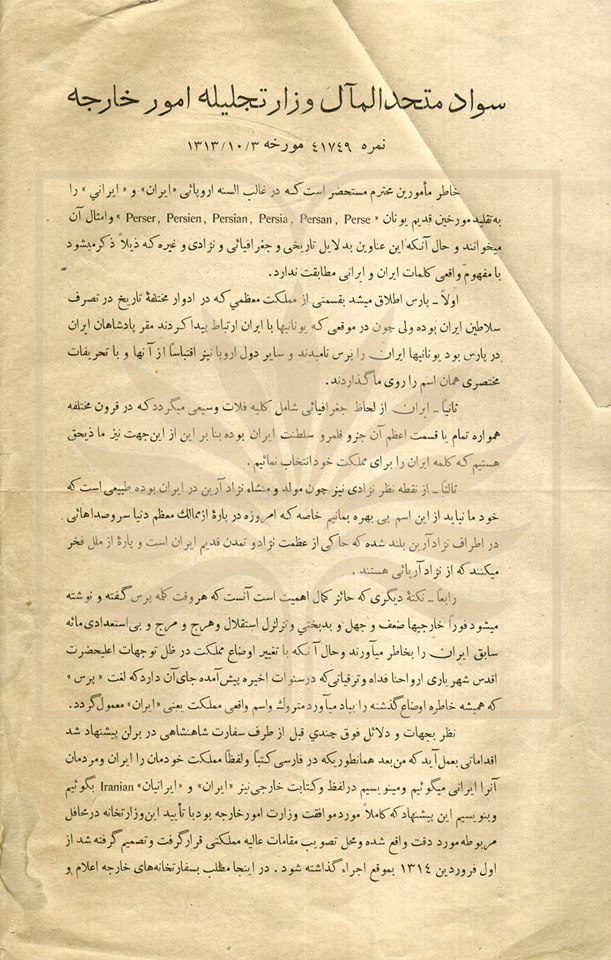 سواد متحدالمآل وزارتجلیله امور خارجه
نمره ۴۱۷۴۹ مورخه ۱۳۱۳/۱۰/۳
خاطر مأمورین محترم مستحضر است که در غالب السنه اروپائی «ایران» و «ایرانی» را
به تقلید مورخین قدیم یونان « Perser, Persien, Persian, Persia, Persan, Perse » و امثال آن
میخوانند و حال آنکه این عناوین بدلایل تاریخی و جغرافیائی و نژادی و غیره که ذیلاً ذکر میشود
با مفهوم واقعی کلمات ایران و ایرانی مطابقت ندارد.
اولاً ــ پارس اطلاق میشد بقسمتی از مملکت معظمی که در ادوار مختلفهٔ تاریخ در تصرف
سلاطین ایران بوده ولی چون در موقعی که یونانیها با ایران ارتباط پیدا کردند مقر پادشاهان ایران
در پارس بود یونانیها ایران را پرس نامیدند و سایر دول اروپا نیز اقتباساً از آنها و با تحریفات
مختصری همان اسم را روی ما گذاردند.
ثانیاً ــ ایران از لحاظ جغرافیائی شامل کلیه فلات وسیعی میگردد که در قرون مختلفه
همواره تمام یا قسمت اعظم آن جزو قلمرو سلطنت ایران بوده بنا بر این از این جهت نیز ما ذیحق
هستیم که کلمه ایران را برای مملکت خود انتخاب نمائیم .
ثالثاً ــ از نقطه نظر نژادی نیز چون مولد و منشاء نژاد آرین در ایران بوده طبیعی است که
خود ما نباید از این اسم بی بهره بمانیم خاصه که امروزه در پارهٔ از ممالك معظم دنیا سر و صداهائی
در اطراف نژاد آرین بلند شده که حاکی از عظمت نژاد و تمدن قدیم ایران است و پارهٔ از ملل فخر
میکنند که از نژاد آریائی هستند .
رابعاً ــ نکتهٔ دیگری که حائز کمال اهمیت است آنست که هر وقت کلمه پرس گفته و نوشته
میشود فوراً خارجیها ضعف و جهل و بدبختی و تزلزل استقلال و هرج و مرج و بی استعدادی مائه
سابق ایران را بخاطر میآورند و حال آنکه با تغییر اوضاع مملکت در ظل توجهات اعلیحضرت
اقدس شهریاری ارواحنا فداه و ترقیاتی که در سنوات اخیره پیش آمده جای آن دارد که لغت « پرس »
که همیشه خاطره اوضاع گذشته را بیاد میآورد متروك و اسم واقعی مملکت یعنی «ایران» معمول گردد.
نظر بجهات و دلائل فوق چندی قبل از طرف سفارت شاهنشاهی در برلن پیشنهاد شد
اقداماتی بعمل آید که من بعد همانطوریکه در فارسی کتباً و لفظاً مملکت خودمان را ایران و مردمان
آنرا ایرانی میگوئیم و مینویسیم در لفظ و کتابت خارجی نیز «ایران» و «ایرانیان» Iranian بگوئیم
و بنویسیم این پیشنهاد که کاملاً مورد موافقت وزارت امور خارجه بود با تأیید این وزارتخانه در محافل
مربوطه مورد دقت واقع شده و محل تصویب مقامات عالیه مملکتی قرار گرفت و تصمیم گرفته شد از
اول فروردین ۱۳۱۴ بموقع اجراء گذاشته شود . در اینجا مطلب بسفارتخانه های خارجه اعلام و